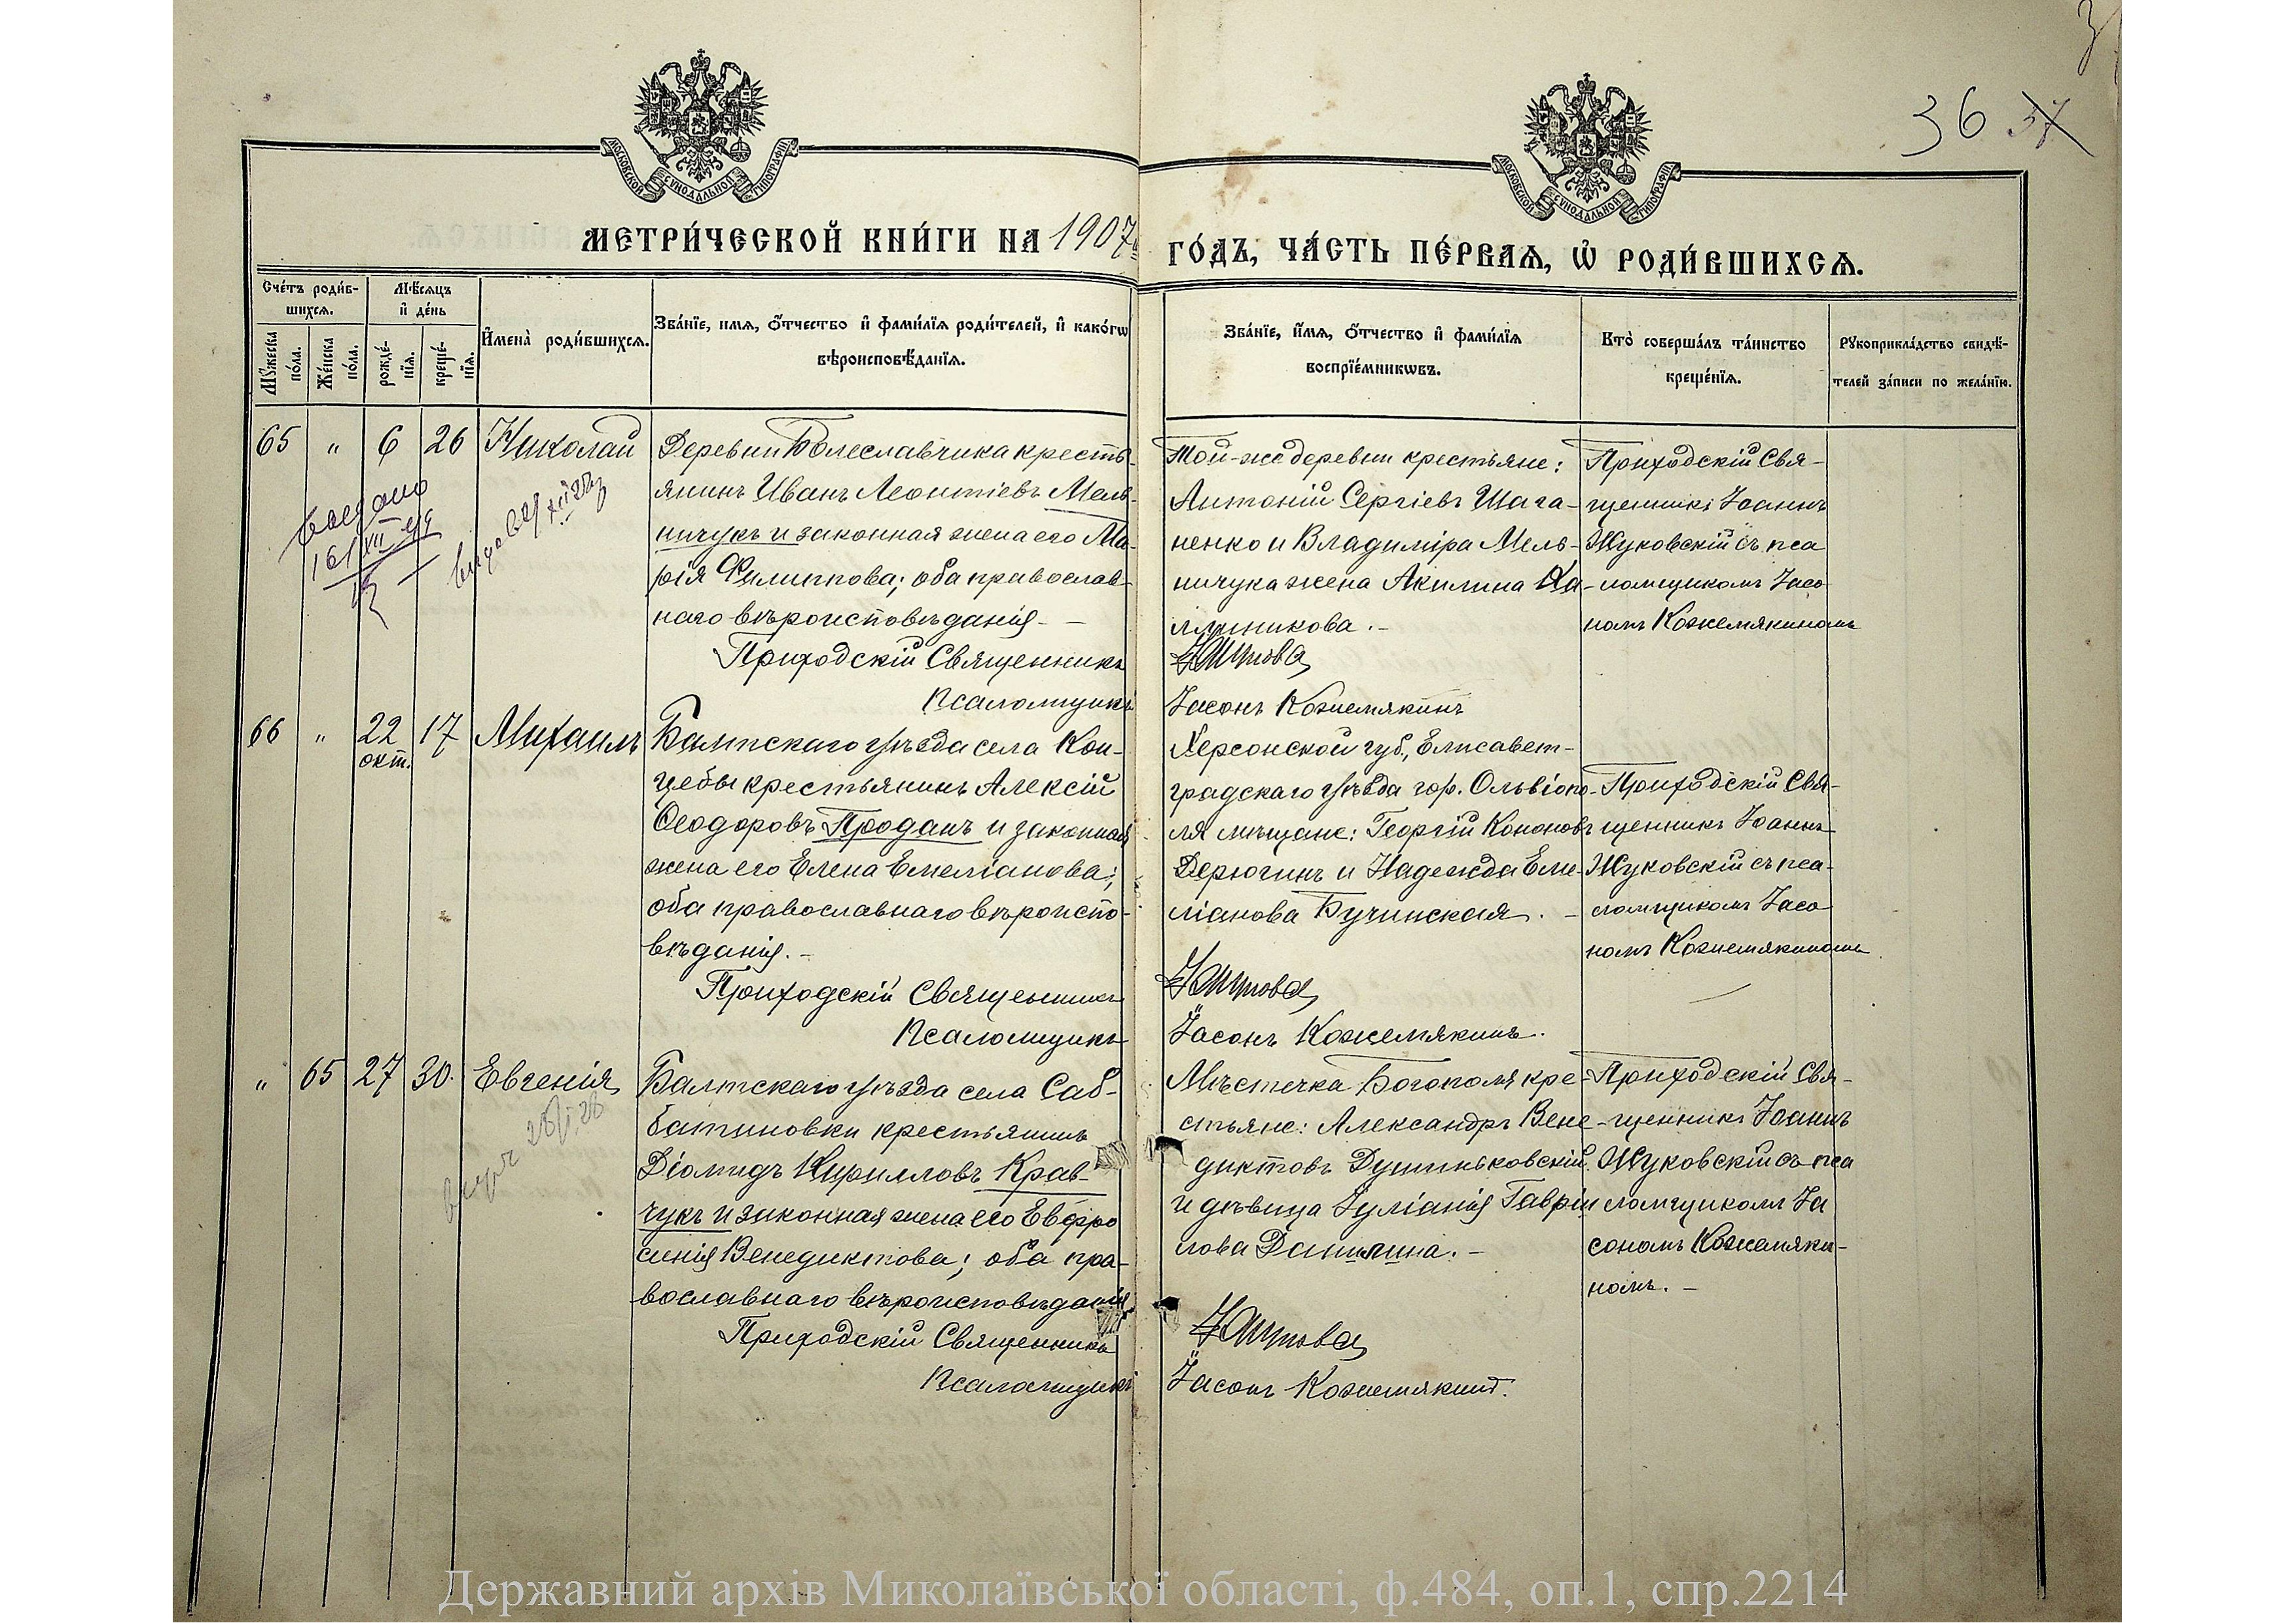 36 37
МОСКОВСКОЙ СѴНОДАЛЬНОЙ ТИПОГРАФІИ
МОСКОВСКОЙ СѴНОДАЛЬНОЙ ТИПОГРАФІИ
МЕТРИ́ЧЕСКОЙ КНИ́ГИ НА 1907
ГО́ДЪ, ЧА́СТЬ ПЕ́РВАѦ, Ѡ҆ РОДИ́ВШИХСѦ.
Сче́тъ роди́в-
шихсѧ.
Мꙋ́жеска по́ла.
Же́нска по́ла.
Мѣ́сѧцъ
и҆ де́нь
рожде́-
нїѧ.
креще́-
нїѧ.
И҆мена̀ роди́вшихсѧ.
Зва́нїе, и҆мѧ, о҆́тчество и҆ фами́лїѧ роди́телей, и҆ како́гѡ
вѣроисповѣ́данїѧ.
Зва́нїе, и҆́мѧ, о҆́тчество и҆ фами́лїѧ
воспрїе́мникѡвъ.
Кто̀ соверша́лъ та́инство
креще́нїѧ.
Рꙋкоприкла́дство свидѣ́-
телей за́писи по жела́нїю.
65 " 6 26 Николай
Деревни Болеславчика кресть-
янинъ Иванъ Леонтіевъ Мель-
ничукъ и законная жена его Ма-
рія Филиппова; оба православ-
наго вѣроисповѣданія. —
Приходскій Священникъ
Псаломщикъ
Той-же деревни крестьяне:
Антоній Сергіевъ Шага-
ненко и Владиміра Мель-
ничука жена Акилина Ка-
линникова. —
Іасонъ Кожемякинъ
Приходскій Свя-
щенникъ Іоаннъ
Жуковскій съ пса
ломщикомъ Іасо
номъ Кожемякиномъ
66 " 22 окт. 17 Михаилъ
Балтскаго уѣзда села Кон-
цебы крестьянинъ Алексій
Ѳеодоровъ Проданъ и законная
жена его Елена Емеліанова;
оба православнаго вѣроиспо-
вѣданія. —
Приходскій Священникъ
Псаломщикъ
Херсонской губ., Елисавет-
градскаго уѣзда гор. Ольвіопо-
ля мѣщане: Георгій Кононовъ
Дерюгинъ и Надежда Еме-
ліанова Бучинская. —
Іасонъ Кожемякинъ.
Приходскій Свя-
щенникъ Іоаннъ
Жуковскій съ пса-
ломщикомъ Іасо
номъ Кожемякиномъ
" 65 27 30. Евгенія
Балтскаго уѣзда села Саб-
батиновки крестьянинъ
Діомидъ Кирилловъ Крав-
чукъ и законная жена его Евфро
синія Венедиктова; оба пра-
вославнаго вѣроисповѣданія
Приходскій Священникъ
Псаломщикъ
Мѣстечка Богополя кре-
стьяне: Александръ Вене-
диктовъ Душиньковскій
и дѣвица Іуліанія Гаврии
лова Данилина. —
Іасонъ Кожемякинъ.
Приходскій Свя-
щенникъ Іоаннъ
Жуковскій съ пса
ломщикомъ Іа
сономъ Кожемяки-
номъ. —
Державний архів Миколаївської області, ф.484, оп.1, спр.2214